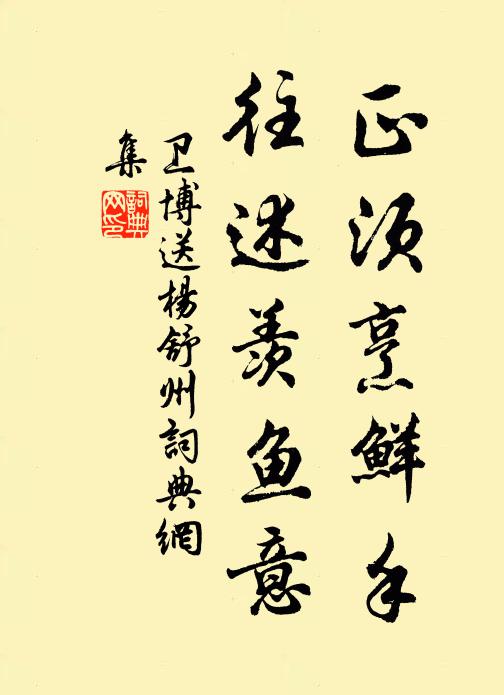 正须烹鲜手
往述羡鱼意
卫博送杨舒州詞典網
集
詞典
网印